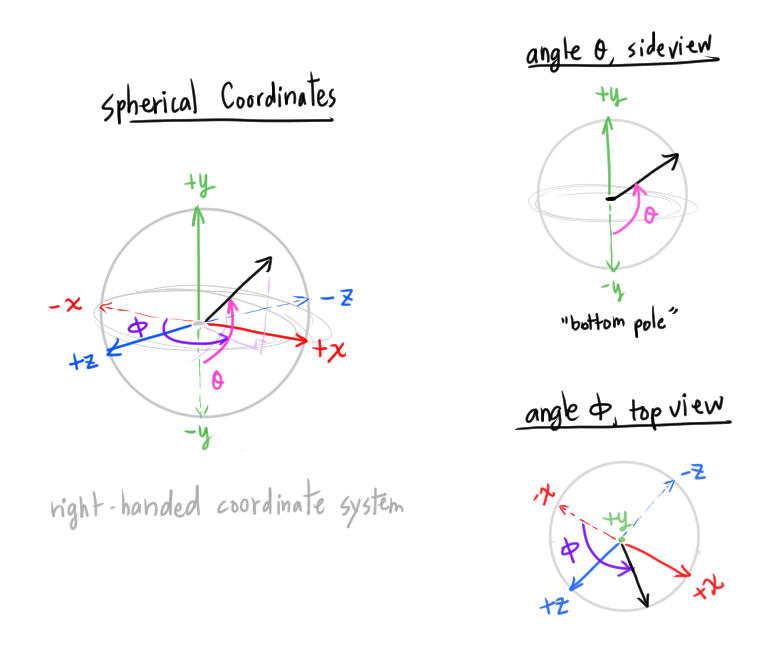 Spherical Coordinates
+y
-x
-z
ϕ
+z
+x
θ
-y
right-handed coordinate system
angle θ, sideview
+y
θ
-y
"bottom pole"
angle ϕ, top view
-z
-x
+y
ϕ
+z
+x